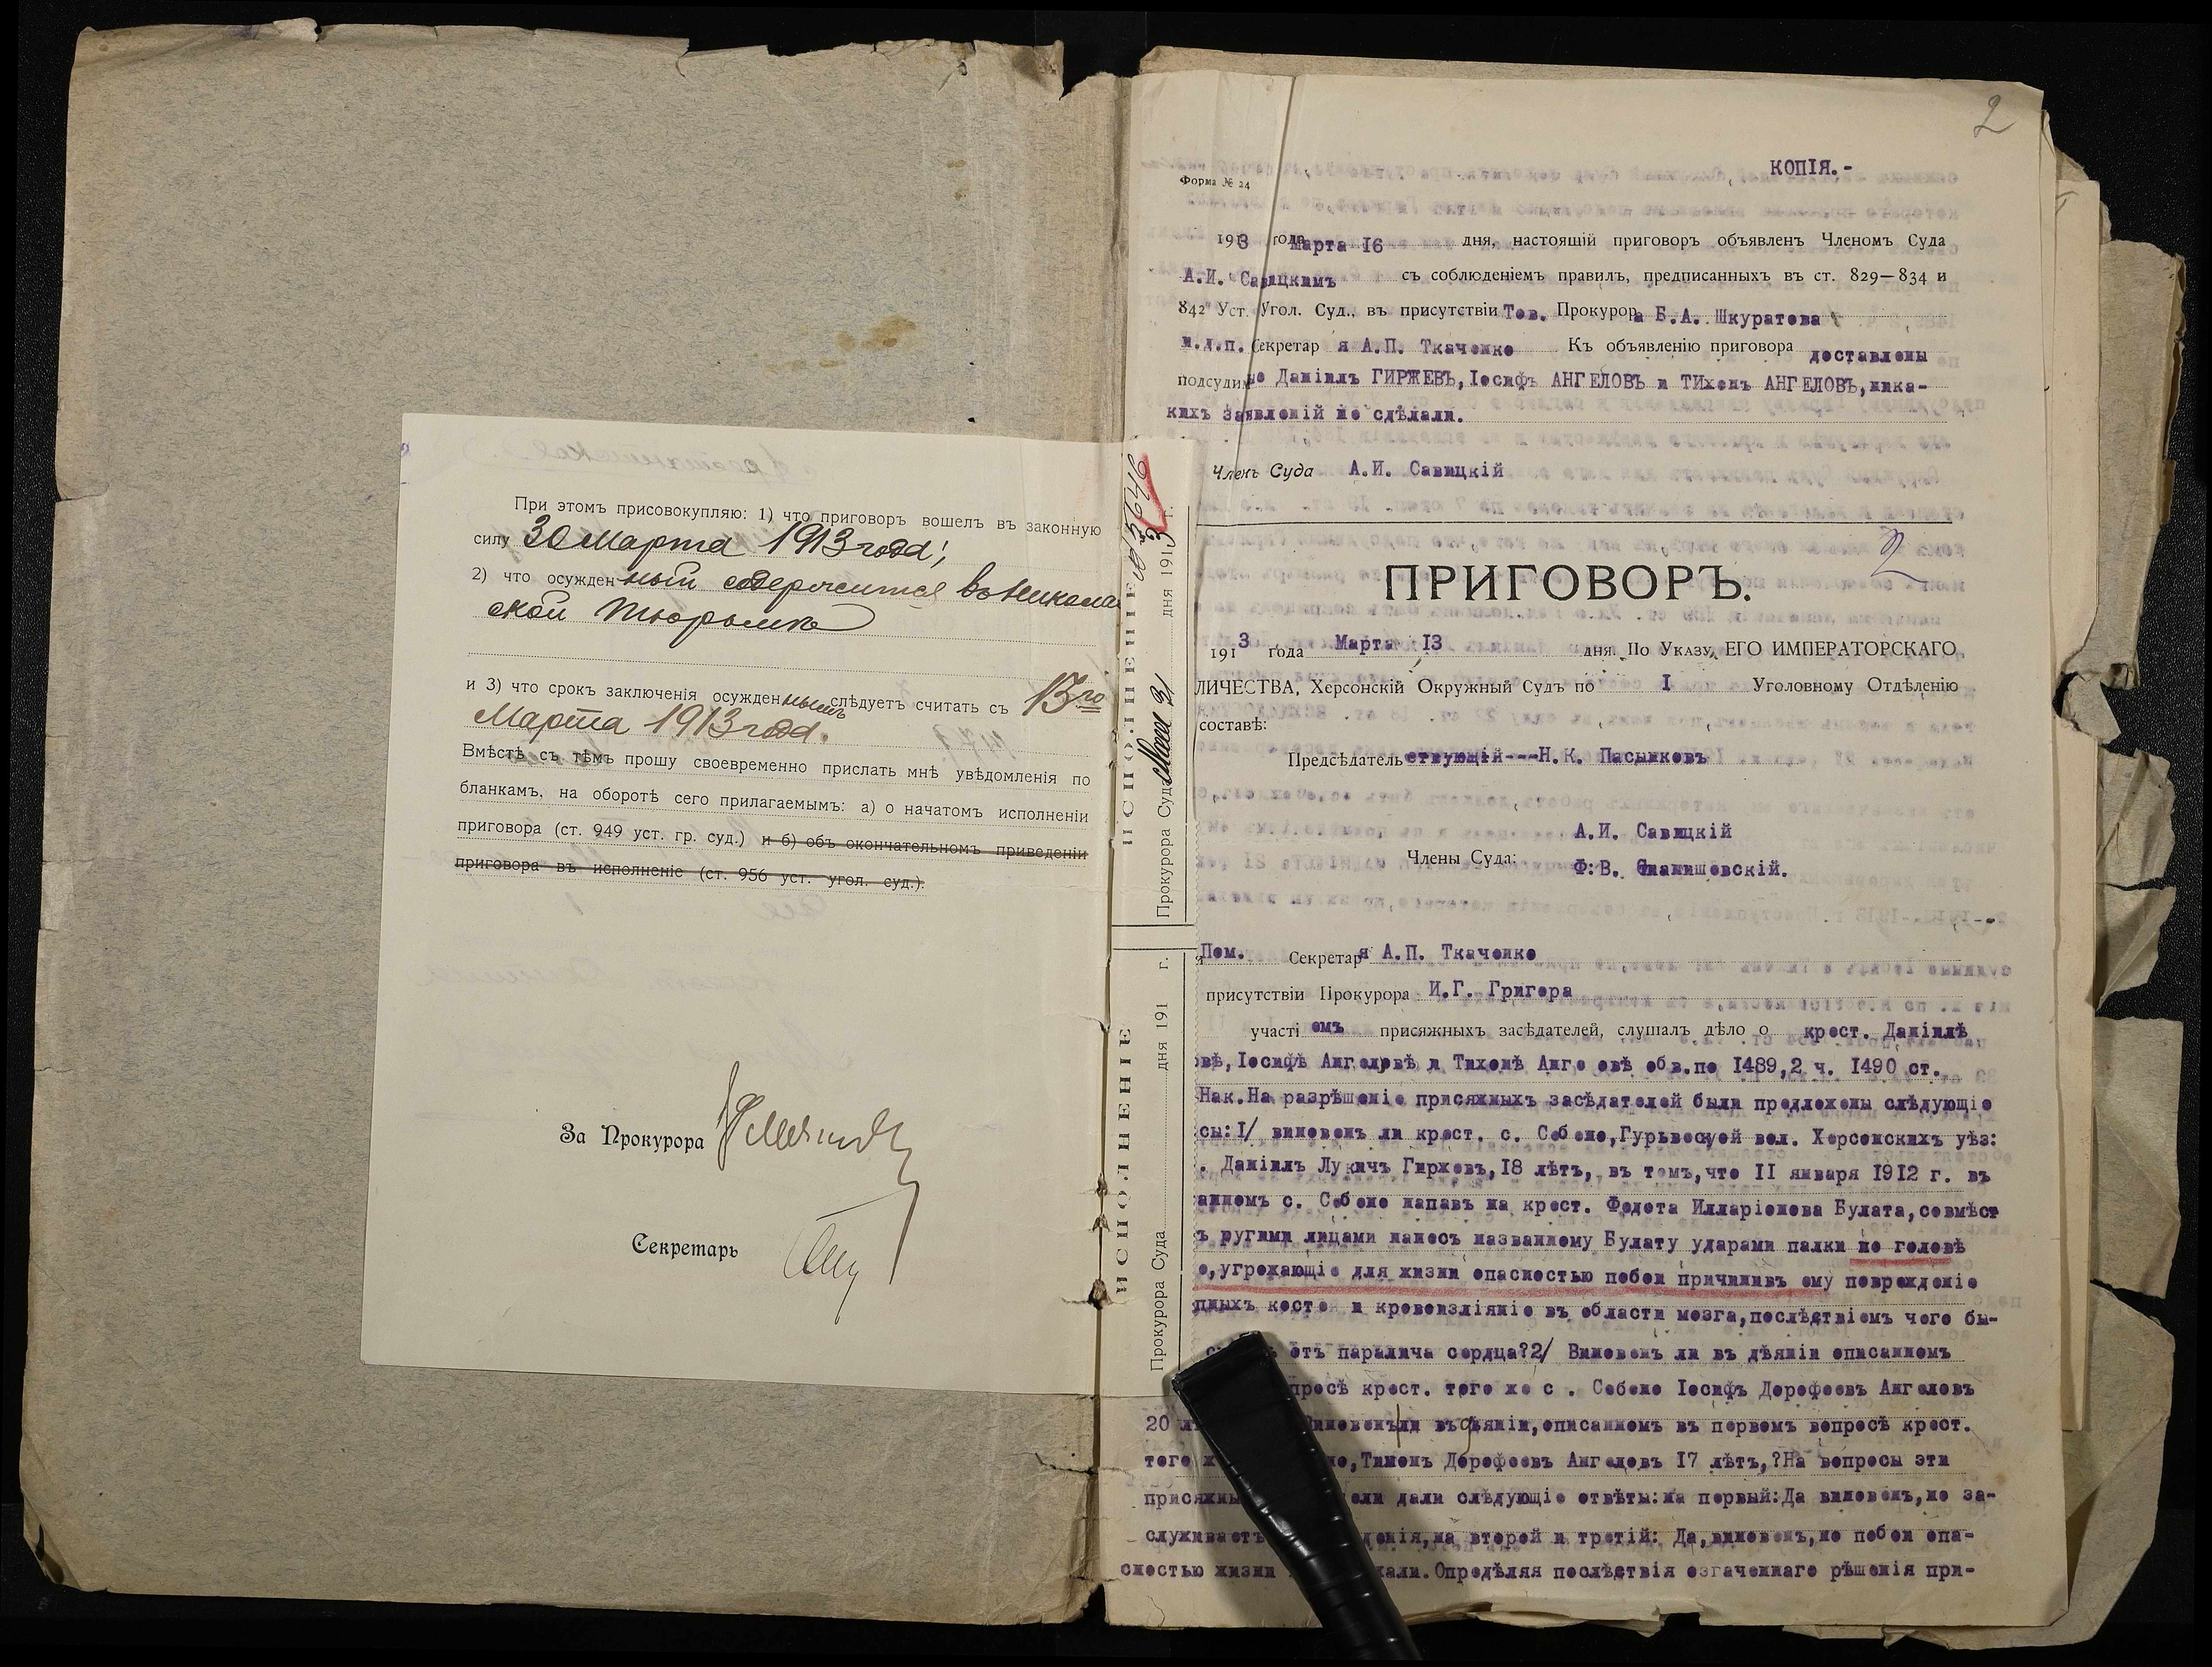 При этомъ присовокупляю: 1) что приговоръ вошелъ въ законную
силу 30 Марта 1913 года;
2) что осужденный содержится въ Никола
ской тюрьмѣ
и 3) что срокъ заключенія осужденнымъ слѣдуетъ считать съ 13го
Марта 1913 года.
Вмѣстѣ съ тѣмъ прошу своевременно прислать мнѣ увѣдомленія по
бланкамъ, на оборотѣ сего прилагаемымъ: а) о начатомъ исполненіи
приговора (ст. 949 уст. гр. суд.) и б) объ окончательномъ приведеніи
приговора въ исполненіе (ст. 956 уст. угол. суд.).
За Прокурора
Секретарь
ИСПОЛНЕНІЕ № 5646
Прокурора Суда Мая 31 дня 1913 г.
ИСПОЛНЕНІЕ
Прокурора Суда дня 191 г.
2
КОПІЯ.-
Форма № 24
1913 года Марта 16 дня, настоящій приговоръ объявленъ Членомъ Суда
А.И. Савицкимъ съ соблюденіемъ правилъ, предписанныхъ въ ст. 829—834 и
842 Уст. Угол. Суд., въ присутствіи Тов. Прокурора Б.А. Шкуратова
и.д.п. Секретаря А.П. Ткаченко Къ объявленію приговора доставлены
подсудимые Даніилъ ГИРЖЕВЪ, Іосифъ АНГЕЛОВЪ и ТИхонъ АНГЕЛОВЪ, ника-
кихъ заявленій не сдѣлали.
Членъ Суда А.И. Савицкій
ПРИГОВОРЪ.
1913 года Марта 13 дня. По Указу ЕГО ИМПЕРАТОРСКАГО
ЛИЧЕСТВА, Херсонскій Окружный Судъ по I Уголовному Отдѣленію
составѣ:
Предсѣдательствующій---Н.К. Пасынковъ
А.И. Савицкій
Члены Суда:
Ф.В. Станишевскій.
Пом. Секретаря А.П. Ткаченко
присутствіи Прокурора И.Г. Григора
участіемъ присяжныхъ засѣдателей, слушалъ дѣло о крест. Даніилѣ
овѣ, Іосифѣ Ангеловѣ и Тихонѣ Анге овѣ обв. по 1489, 2 ч. 1490 ст.
Нак. На разрѣшеніе присяжныхъ засѣдателей были предложены слѣдующіе
сы: I/ виновенъ ли крест. с. Собене, Гурьвской вол. Херсонскихъ уѣз:
. Даніилъ Лукичъ Гиржевъ, 18 лѣтъ, въ томъ, что II января 1912 г. въ
анномъ с. Собене напавъ на крест. Федота Илларіонова Булата, совмѣст
ъ ругими лицами нанесъ названному Булату ударами палки по головѣ
е, угрожающіе для жизни опасностью побои причинивъ ему поврежденіе
пныхъ костей и кровоизліяніе въ области мозга, послѣдствіемъ чего бы-
отъ паралича сердца? 2/ Виновенъ ли въ дѣяніи описанномъ
просѣ крест. того же с. Собене Іосифъ Дорофеевъ Ангеловъ
20 Виновенъ ли въ дѣяніи, описанномъ въ первомъ вопросѣ крест.
того Тихонъ Дорофеевъ Ангеловъ 17 лѣтъ,? На вопросы эти
присяжны ели дали слѣдующіе отвѣты: на первый: Да виновенъ, не за-
служиваетъ денія, на второй и третій: Да, виновенъ, но побои опа-
сностью жизни жали. Опредѣляя послѣдствія означеннаго рѣшенія при-